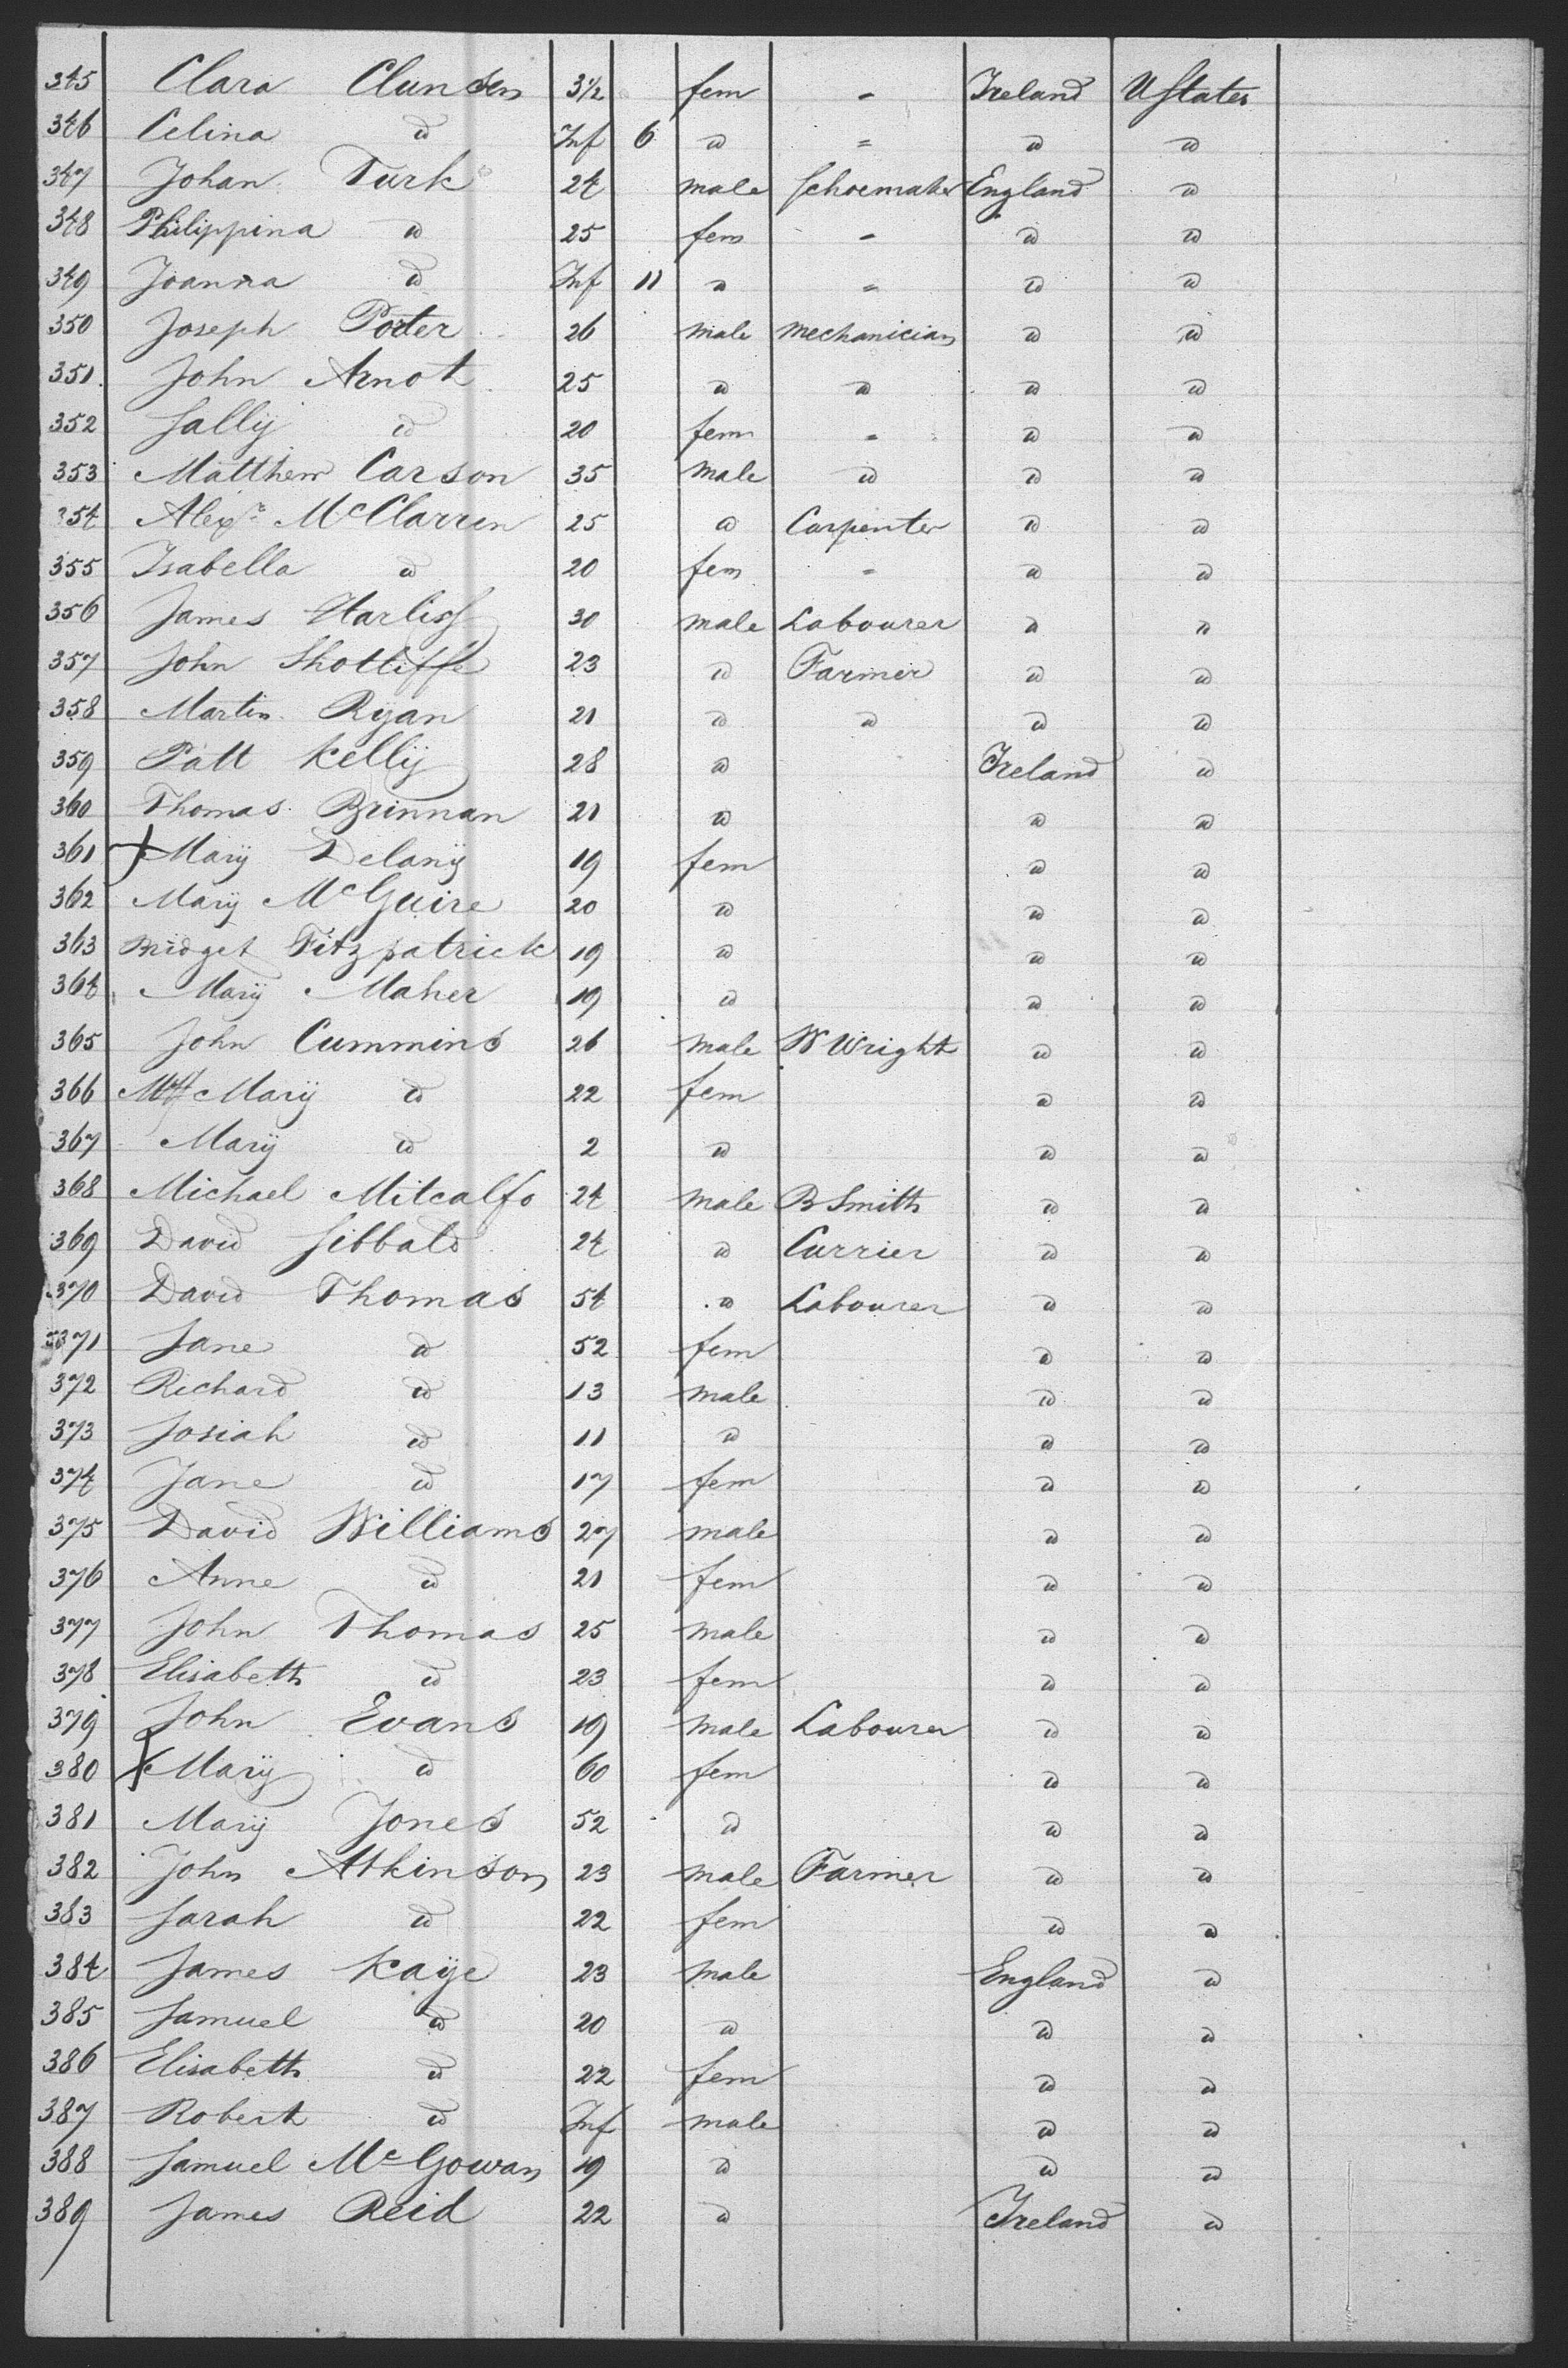 345 Clara Clundsen 3½ fem - Ireland U States
346 Celina d Inf 6 d = d d
347 Johan Turk 24 male Schoemaker England d
348 Philippina d 25 fem - d d
349 Joanna d Inf 11 d = d d
350 Joseph Poter 26 male mechanician d d
351 John Arnot 25 d d d d
352 Sally d 20 fem = d d
353 Matthew Carson 35 male d d d
354 Alexr McClarren 25 d Carpenter d d
355 Isabella d 20 fem = d d
356 James Harliss 30 male Labourer d d
357 John Shotliffe 23 d Farmer d d
358 Martin Ryan 21 d d d d
359 Patt Kelly 28 d Ireland d
360 Thomas Brinnan 21 d d d
361 + Mary Delany 19 fem d d
362 Mary McGuire 20 d d d
363 Bridget Fitzpatrick 19 d d d
364 Mary Maher 19 d d d
365 John Cummins 26 male W Wright d d
366 Mary d 22 fem d d
367 Mary d 2 d d d
368 Michael Mitcalfo 24 male B Smith d d
369 David Sibbald 24 d Currier d d
370 David Thomas 54 d Labourer d d
371 Jane d 52 fem d d
372 Richard d 13 male d d
373 Josiah d 11 d d d
374 Jane d 17 fem d d
375 David Williams 27 male d d
376 Anne d 21 fem d d
377 John Thomas 25 male d d
378 Elisabeth d 23 fem d d
379 John Evans 19 male Labourer d d
380 + Mary d 60 fem d d
381 Mary Jones 52 d d d
382 John Atkinson 23 male Farmer d d
383 Sarah d 22 fem d d
384 James Kaye 23 male England d
385 Samuel d 20 d d d
386 Elisabeth d 22 fem d d
387 Robert d Inf male d d
388 Samuel McGowan 19 d d d
389 James Reid 22 d Ireland d